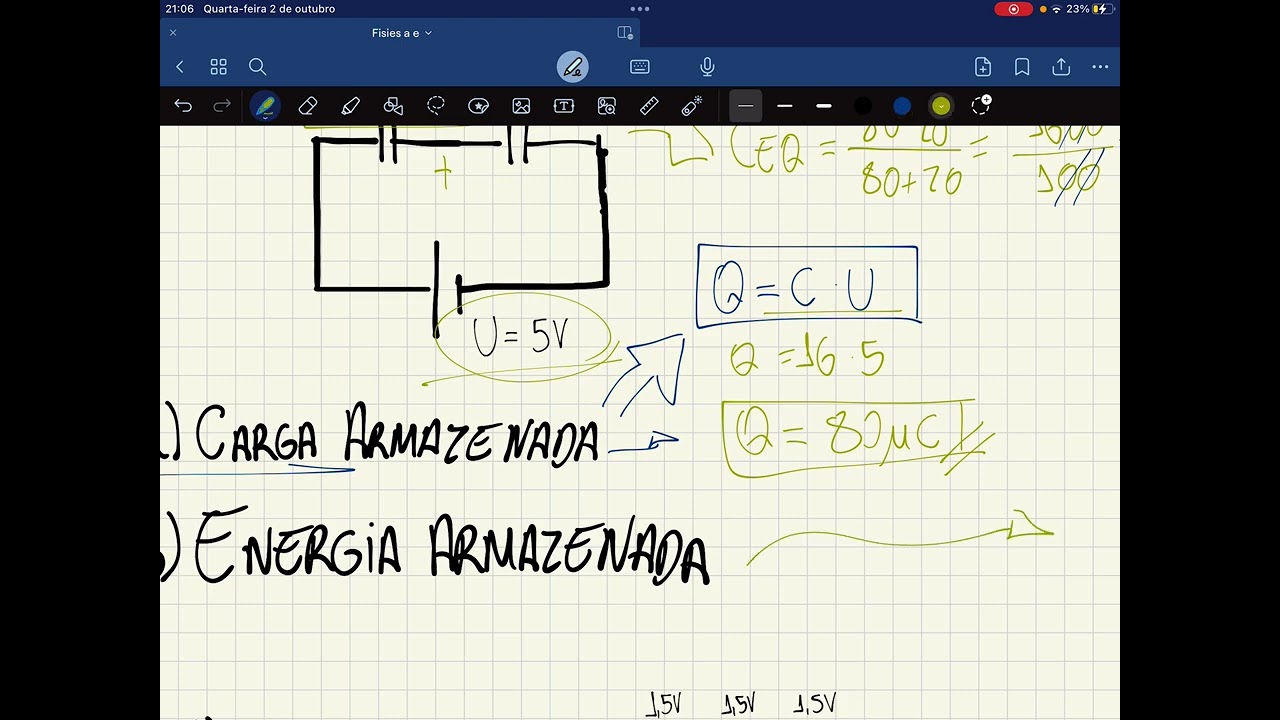 21:06 Quarta-feira 2 de outubro
23%
Fisies a e
T
CEQ = 80·20 = 1600
80+20 100
+
Q = C · U
U = 5V
Q = 16 · 5
) CARGA ARMAZENADA
Q = 80μC
) ENERGIA ARMAZENADA
1,5V 1,5V 1,5V